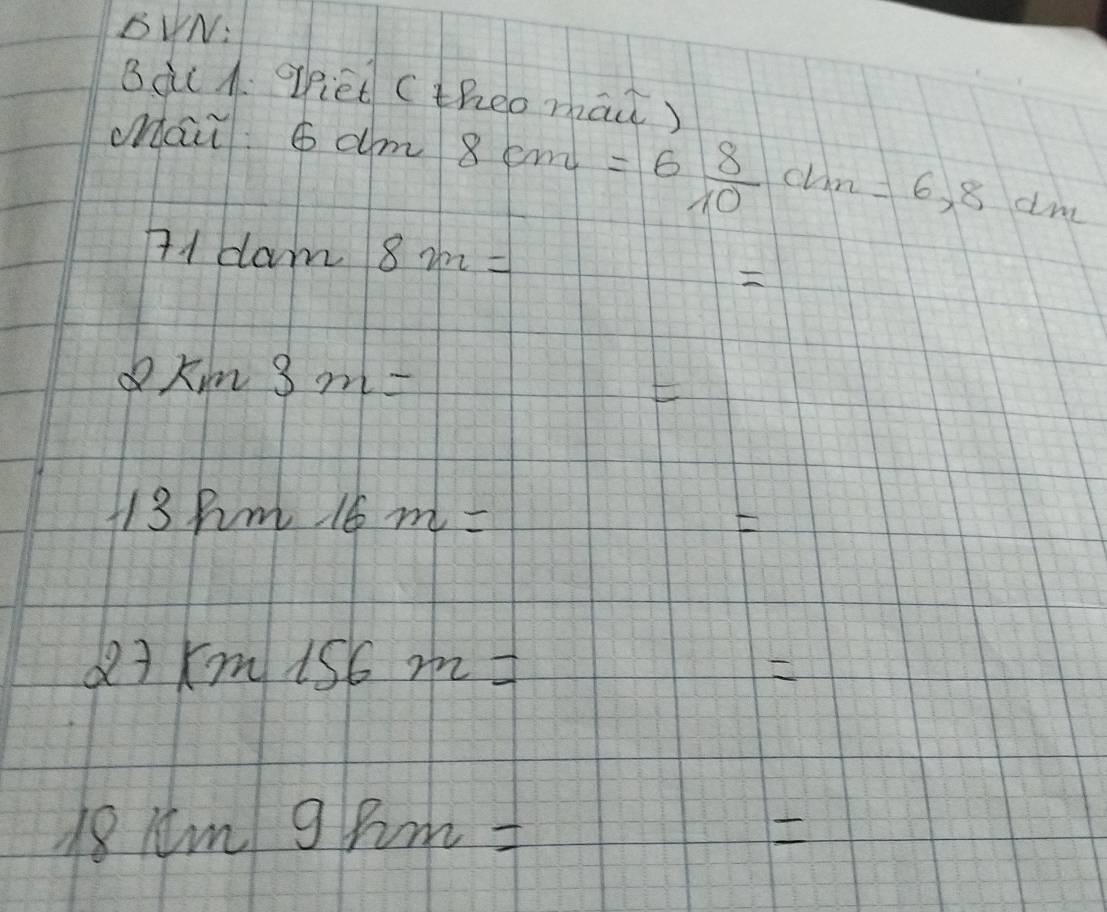 BVN:
Bài 1. Viết (theo mẫu)
Mẫu: 6 dm 8 cm = 6 8/10 dm = 6,8 dm
71 dam 8 m = =
2 km 3 m = =
13 hm 16 m = =
27 km 156 m = =
18 km 9 hm = =